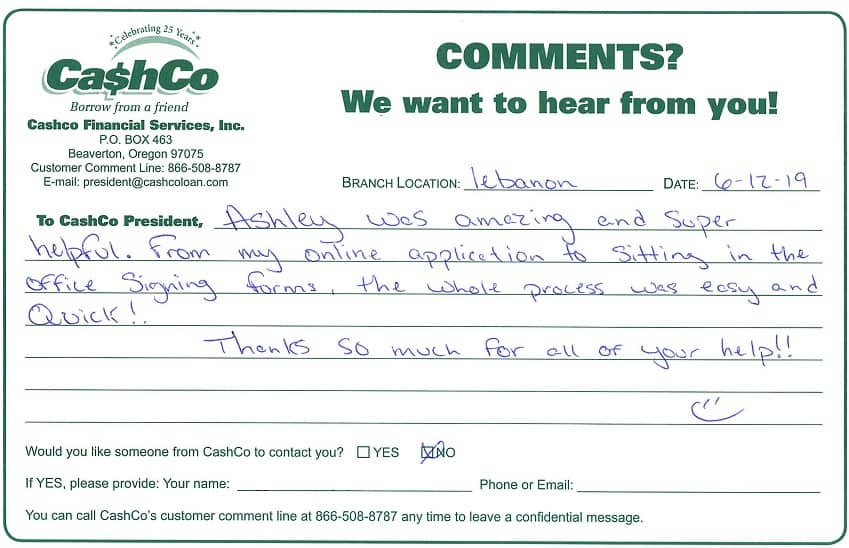 Celebrating 25 Years
COMMENTS?
Ca$hCo
We want to hear from you!
Borrow from a friend
Cashco Financial Services, Inc.
P.O. BOX 463
Beaverton, Oregon 97075
Customer Comment Line: 866-508-8787
E-mail: president@cashcoloan.com
BRANCH LOCATION: lebanon DATE: 6-12-19
To CashCo President, Ashley was amazing and Super
helpful. From my online application to Sitting in the
office Signing forms, the whole process was easy and
Quick!.
Thanks so much for all of your help!!
Would you like someone from CashCo to contact you? YES NO
If YES, please provide: Your name: Phone or Email:
You can call CashCo's customer comment line at 866-508-8787 any time to leave a confidential message.